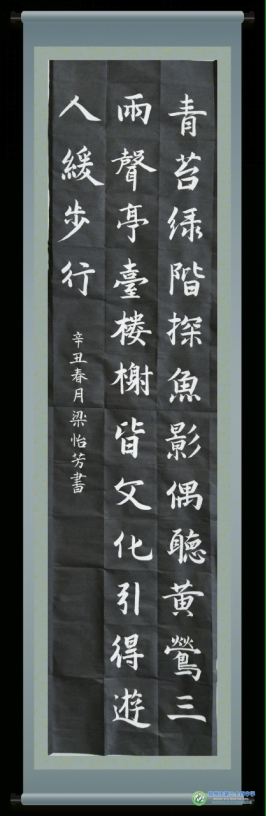 青苔绿階探魚影偶聽黄鶯三
兩聲亭臺楼榭皆文化引得遊
人緩步行
辛丑春月梁怡芳書